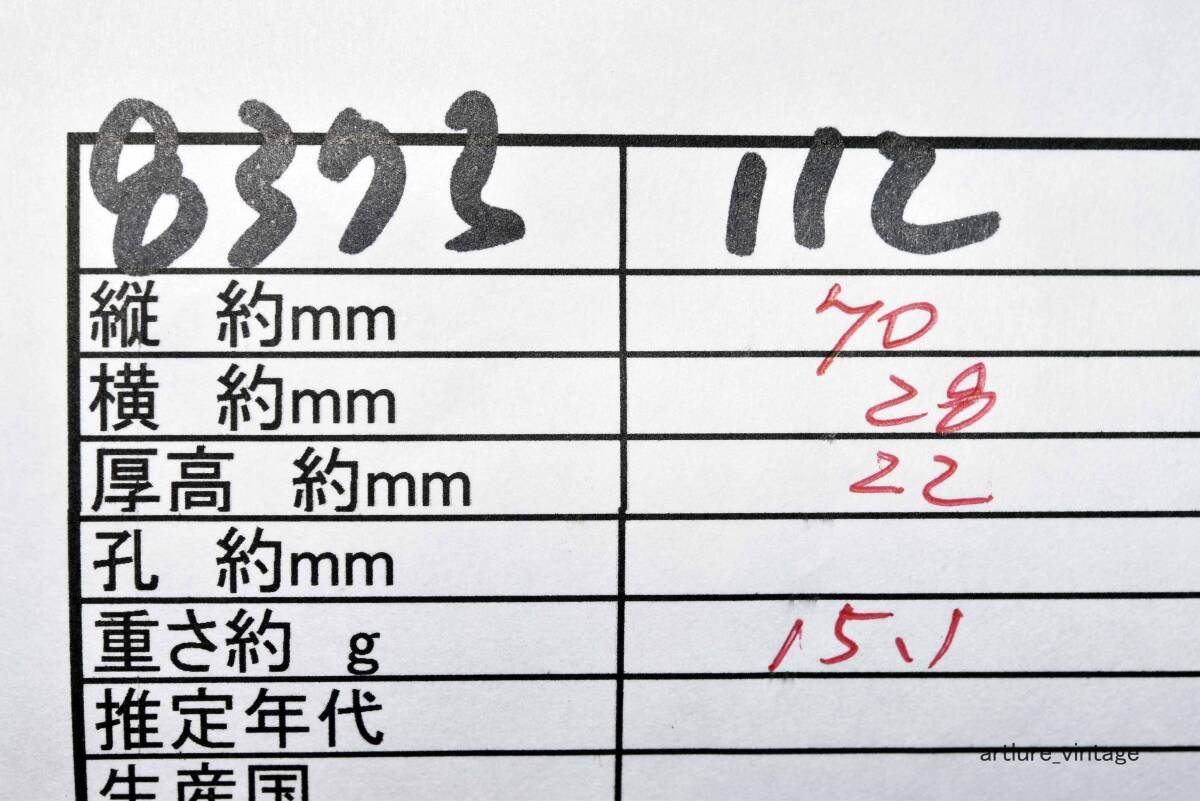 8373 112
縦 約mm 70
横 約mm 28
厚高 約mm 22
孔 約mm
重さ約 g 15.1
推定年代
生産国
artlure_vintage